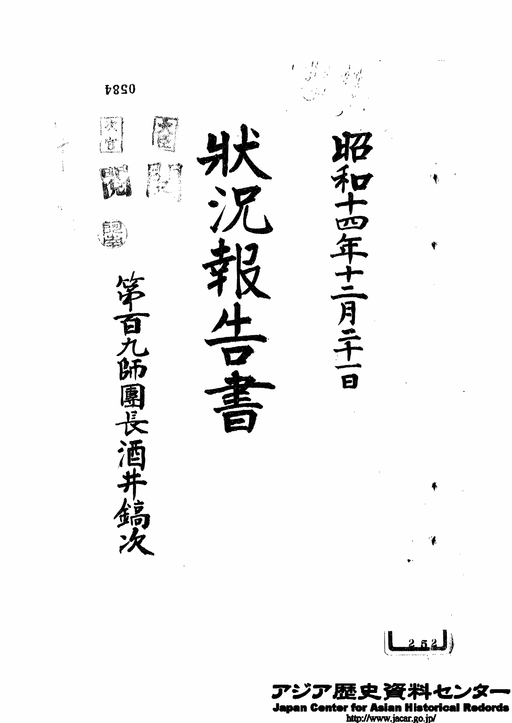 昭和十四年十二月二十一日
狀況報告書
第百九師團長酒井鎬次
大臣
次官
閲
0584
252
アジア歴史資料センター
Japan Center for Asian Historical Records
http://www.jacar.go.jp/